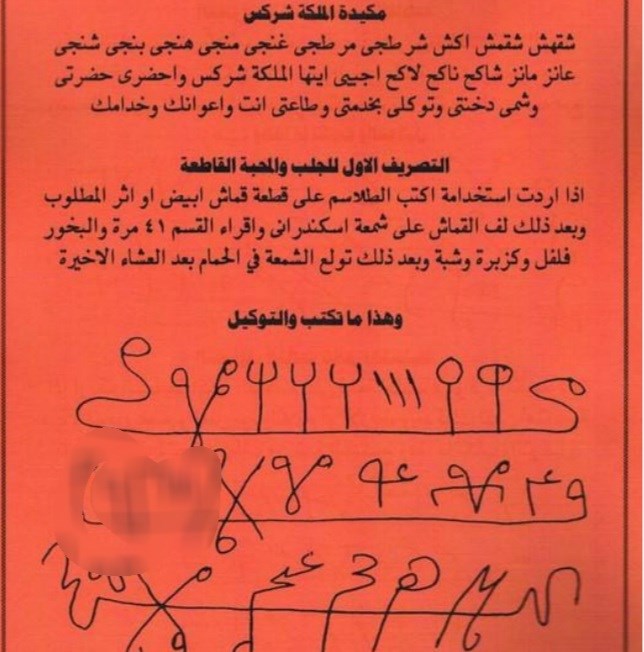 مكيدة الملكة شركس
شقهش شقمش اكش شر طجى مر طجى غنجى منجى هنجى بنجى شنجى
عانز مانز شاكح ناكح لاكح اجيبى ايتها الملكة شركس واحضرى حضرتى
وشمى دخنتى وتوكلى بخدمتى وطاعتى انت واعوانك وخدامك
التصريف الاول للجلب والمحبة القاطعة
اذا اردت استخدامة اكتب الطلاسم على قطعة قماش ابيض او اثر المطلوب
وبعد ذلك لف القماش على شمعة اسكندرانى واقراء القسم ٤١ مرة والبخور
فلفل وكزبرة وشبة وبعد ذلك تولع الشمعة في الحمام بعد العشاء الاخيرة
وهذا ما تكتب والتوكيل